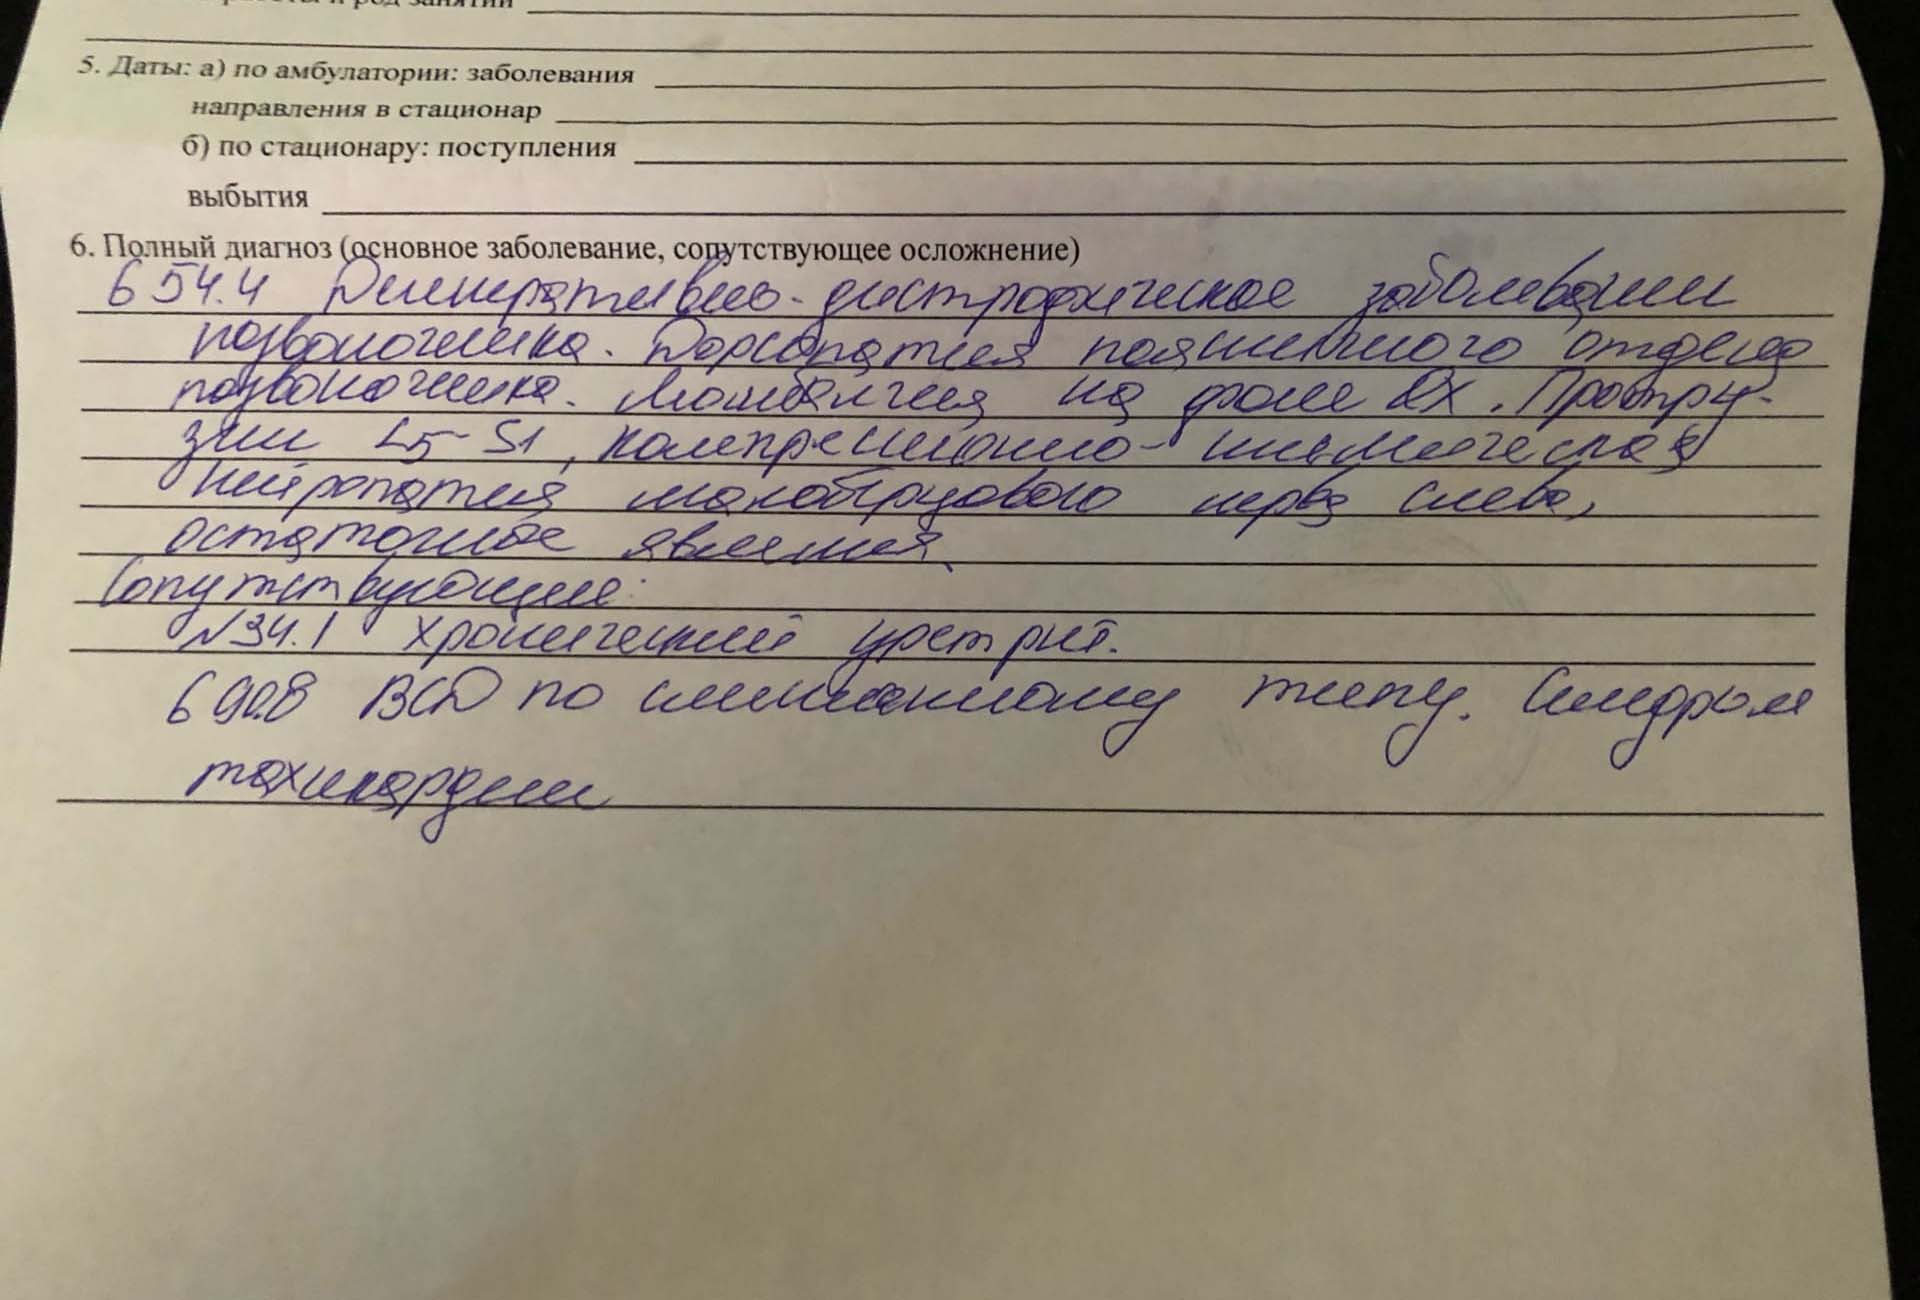 род занятий
5. Даты: а) по амбулатории: заболевания
направления в стационар
б) по стационару: поступления
выбытия
6. Полный диагноз (основное заболевание, сопутствующее осложнение)
G 54.4 Дегенеративно-дистрофическое заболевание
позвоночника. Дорсопатия поясничного отдела
позвоночника. Люмбалгия на фоне ОХ. Протру-
зии L5-S1, компрессионно-ишемическая
нейропатия малоберцового нерва слева,
остаточные явления.
Сопутствующие:
N34.1 хронический уретрит.
G 90.8 ВСД по смешанному типу. Синдром
тахикардии